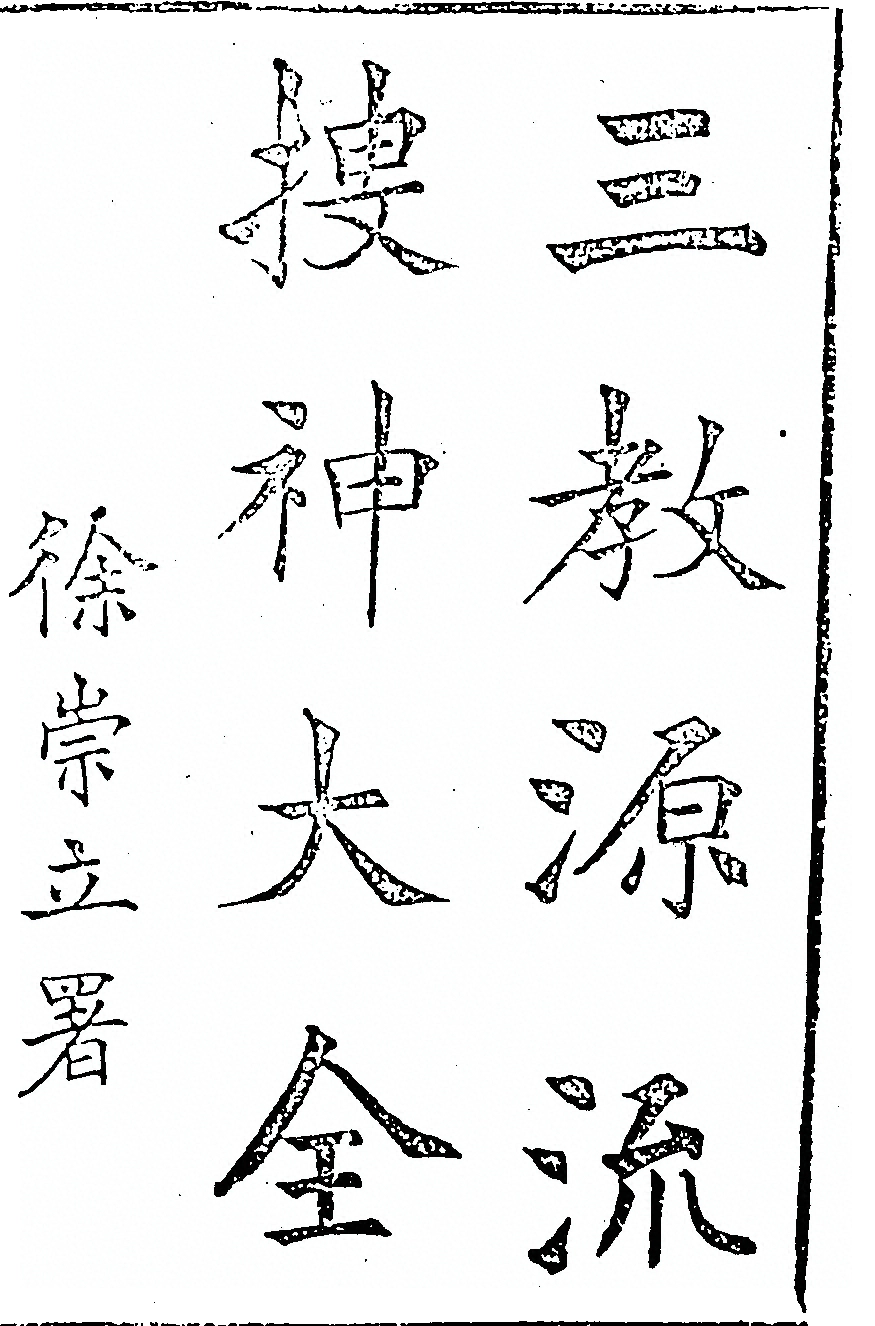 三教源流
搜神大全
徐崇立署